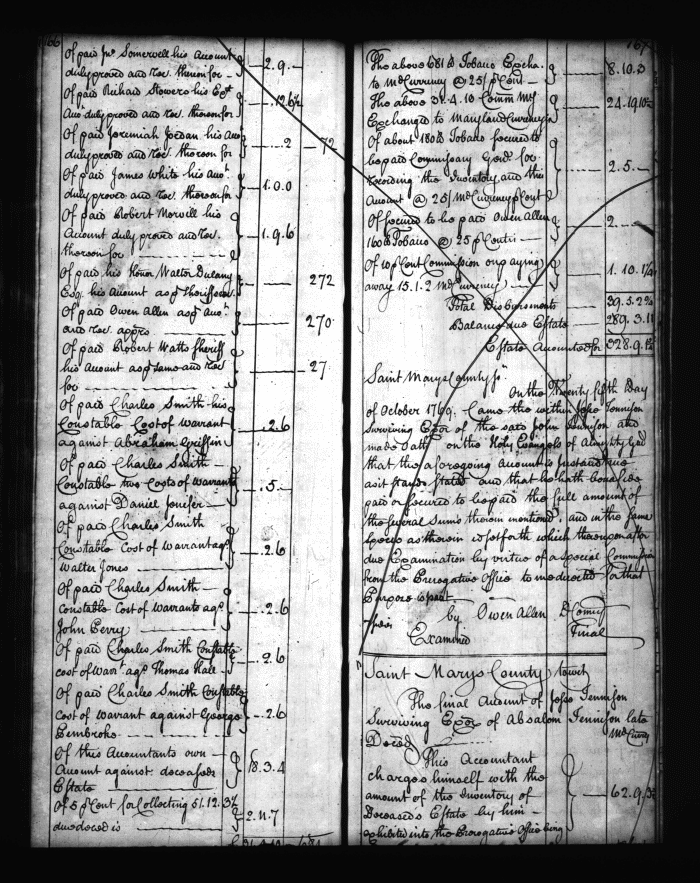 166
Of paid Jno Somervell his Account
duly proved and Rec. thereon for - 2.9.
Of paid Richard Stowers his Exr
Acco duly proved and rec. thereon for .12.6½
Of paid Jeremiah Jordan his Acco
duly proved and Rec. thereon for - 2 - 72
Of paid James White his Acco
duly proved and rec. thereon for 1.0.0
Of paid Robert Norvell his
Account duly proved and rec. 1.9.6
thereon for
Of paid his Honor Walter Dulany
Esqr his Account as pr Sheriffs rec. 272
Of paid Owen Allen as pr Acco
and rec. apprs 270
Of paid Robert Watts Sheriff
his Account as pr same and rec 27
for
Of paid Charles Smith his
Constable Cost of warrant .2.6
against Abraham Griffin
Of paid Charles Smith
Constable two Costs of warrants .5.
against Daniel Jenifer
Of paid Charles Smith
Constable Cost of Warrant agt .2.6
Walter Jones
Of paid Charles Smith
Constable Cost of warrants agt .2.6
John Perry
Of paid Charles Smith Constable
cost of Warrt agt Thomas Hall .2.6
Of paid Charles Smith Constable
cost of Warrant against George .2.6
Pembroke
Of this Accountants own
Account against deceaseds 18.3.4
Estate
Of 5 pr Cent for Collecting 51.12.3½
due deced is 2.11.7
167
The above 681 lb Tobacco Excha.
to Md Currency @ 25/ p Cent 8.10.3
The above 31.4.10 Comm Mo
Exchanged to Maryland Currency is 24.19.10½
Of about 180 lb Tobacco secured to
be paid Commissary Genl for
recording the Inventory and this 2.5.
Account @ 25/ Md Currency p Cent
Of secured to be paid Owen Allen
160 lb Tobacco @ 25 p Cent is 2
Of 10 p Cent Commission on paying
away 15.1.2 Md Currency 1.10.1¼
Total Disbursments 39.5.2¾
Balance due Estate 289.3.11
Estate Accounted for 328.9.1¾
Saint Marys County ss.
On the Twenty fifth Day
of October 1769. Came the within Jesse Tennison
Surviving Exor of the said John Tennison and
made Oath on the Holy Evangels of Almighty God
that the aforegoing Account is just and true
as it stands stated and that he hath bona fide
paid or secured to be paid the full amount of
the several Sums therein mentiond, and in the same
Species as therein is set forth which thereupon after
due Examination by virtue of a Special Commission
from the Prerogative Office to me directed for that
Purpose is past
by Owen Allen D Comry
Examined Final
Saint Marys County towit
The final Account of Jesse Tennison
Surviving Exor of Absalom Tennison late
Deced Md Curry
This Accountant
charges himself with the
amount of the Inventory of 62.9.
Deceased's Estate by him
exhibited into the Prerogative Office being